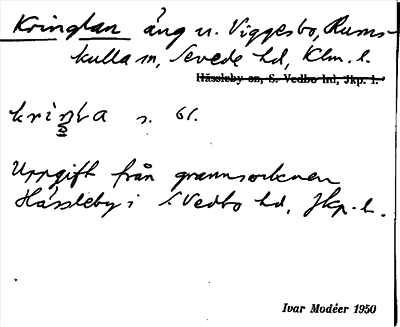 Kringlan äng u. Viggesbo, Rums-
kulla sn, Sevede hd, Klm. l.
Hässleby sn, S. Vedbo hd, Jkp. l.
kriŋla s. 61.
Uppgift från grannsocknen
Hässleby i S. Vedbo hd, Jkp. l.
Ivar Modéer 1950